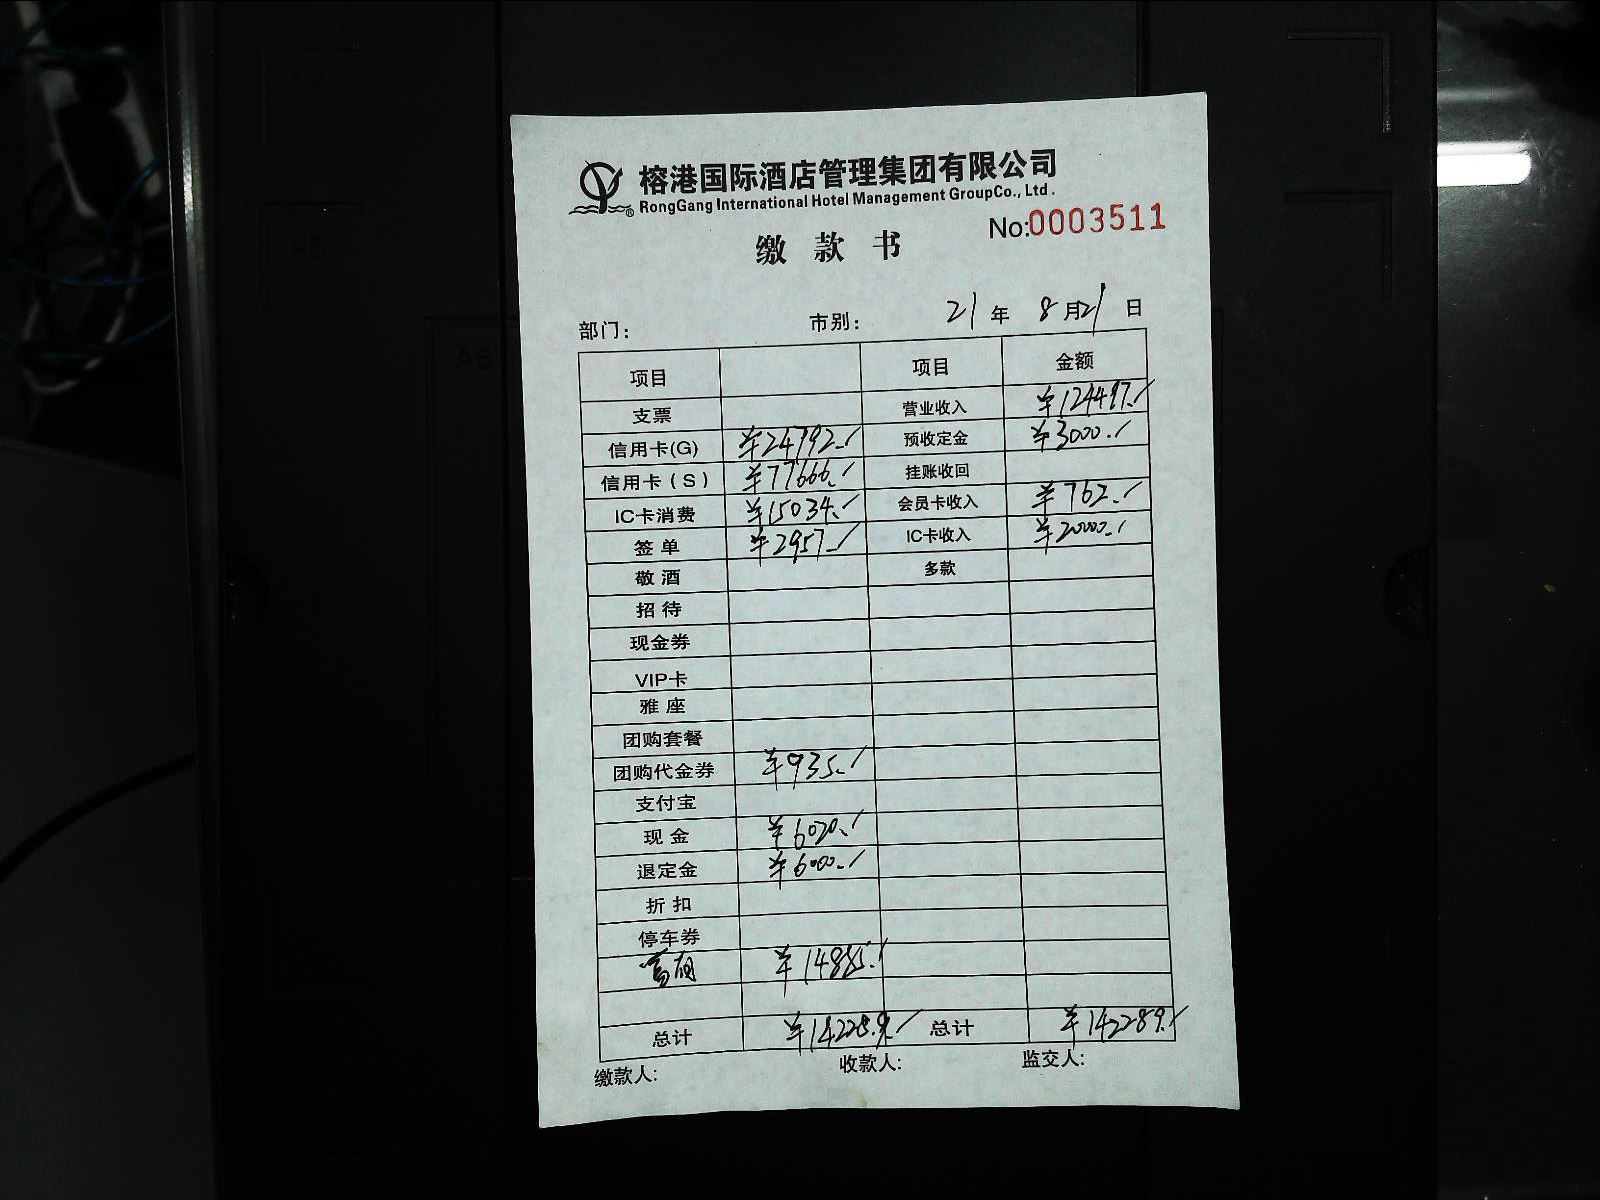 榕港国际酒店管理集团有限公司
RongGang International Hotel Management GroupCo., Ltd.
No:0003511
缴 款 书
部门: 市别: 21 年 8 月 21 日
项目 项目 金额
支票 营业收入 ¥124497.-
信用卡(G) ¥24792.- 预收定金 ¥3000.-
信用卡(S) ¥77666.- 挂账收回
IC卡消费 ¥15034.- 会员卡收入 ¥762.-
签 单 ¥2957.- IC卡收入 ¥20000.-
敬 酒 多款
招 待
现金券
VIP卡
雅 座
团购套餐
团购代金券 ¥935.-
支付宝
现 金 ¥6020.-
退定金 ¥6000.-
折 扣
停车券
¥14885.-
总计 总计 ¥142289.-
缴款人: 收款人: 监交人:
A5
A6